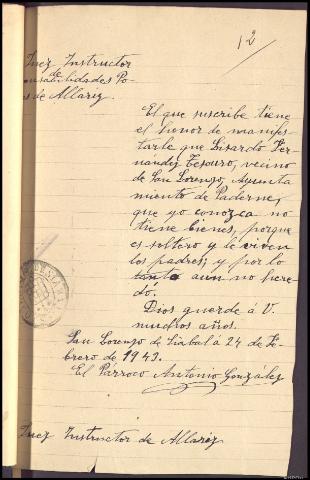 12
Juez Instructor
de
onsabilidades Po-
s de Allariz.
El que suscribe tiene
el honor de manifes-
tarle que Lisardo Fer-
nandez Tesouro, vecino
de San Lorenzo, Ayunta
miento de Paderne,
que yo conozca no
tiene bienes, porque
es soltero y le viven
los padres; y por lo
tanto aun no here-
dó.
Dios guarde á V.
muchos años.
San Lorenzo de Siabal á 24 de Fe-
brero de 1943.
El Parroco Antonio González
Juez Instructor de Allariz